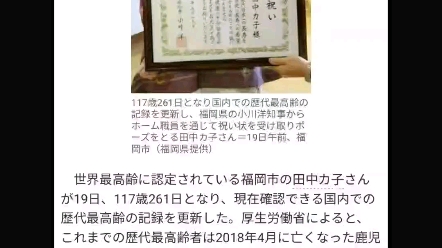 祝い
田中カ子様
117歳261日となり国内での歴代最高齢の
記録を更新し、福岡県の小川洋知事から
ホーム職員を通じて祝い状を受け取りポ
ーズをとる田中カ子さん＝19日午前、福
岡市（福岡県提供）
世界最高齢に認定されている福岡市の田中カ子さん
が19日、117歳261日となり、現在確認できる国内での
歴代最高齢の記録を更新した。厚生労働省によると、
これまでの歴代最高齢者は2018年4月に亡くなった鹿児